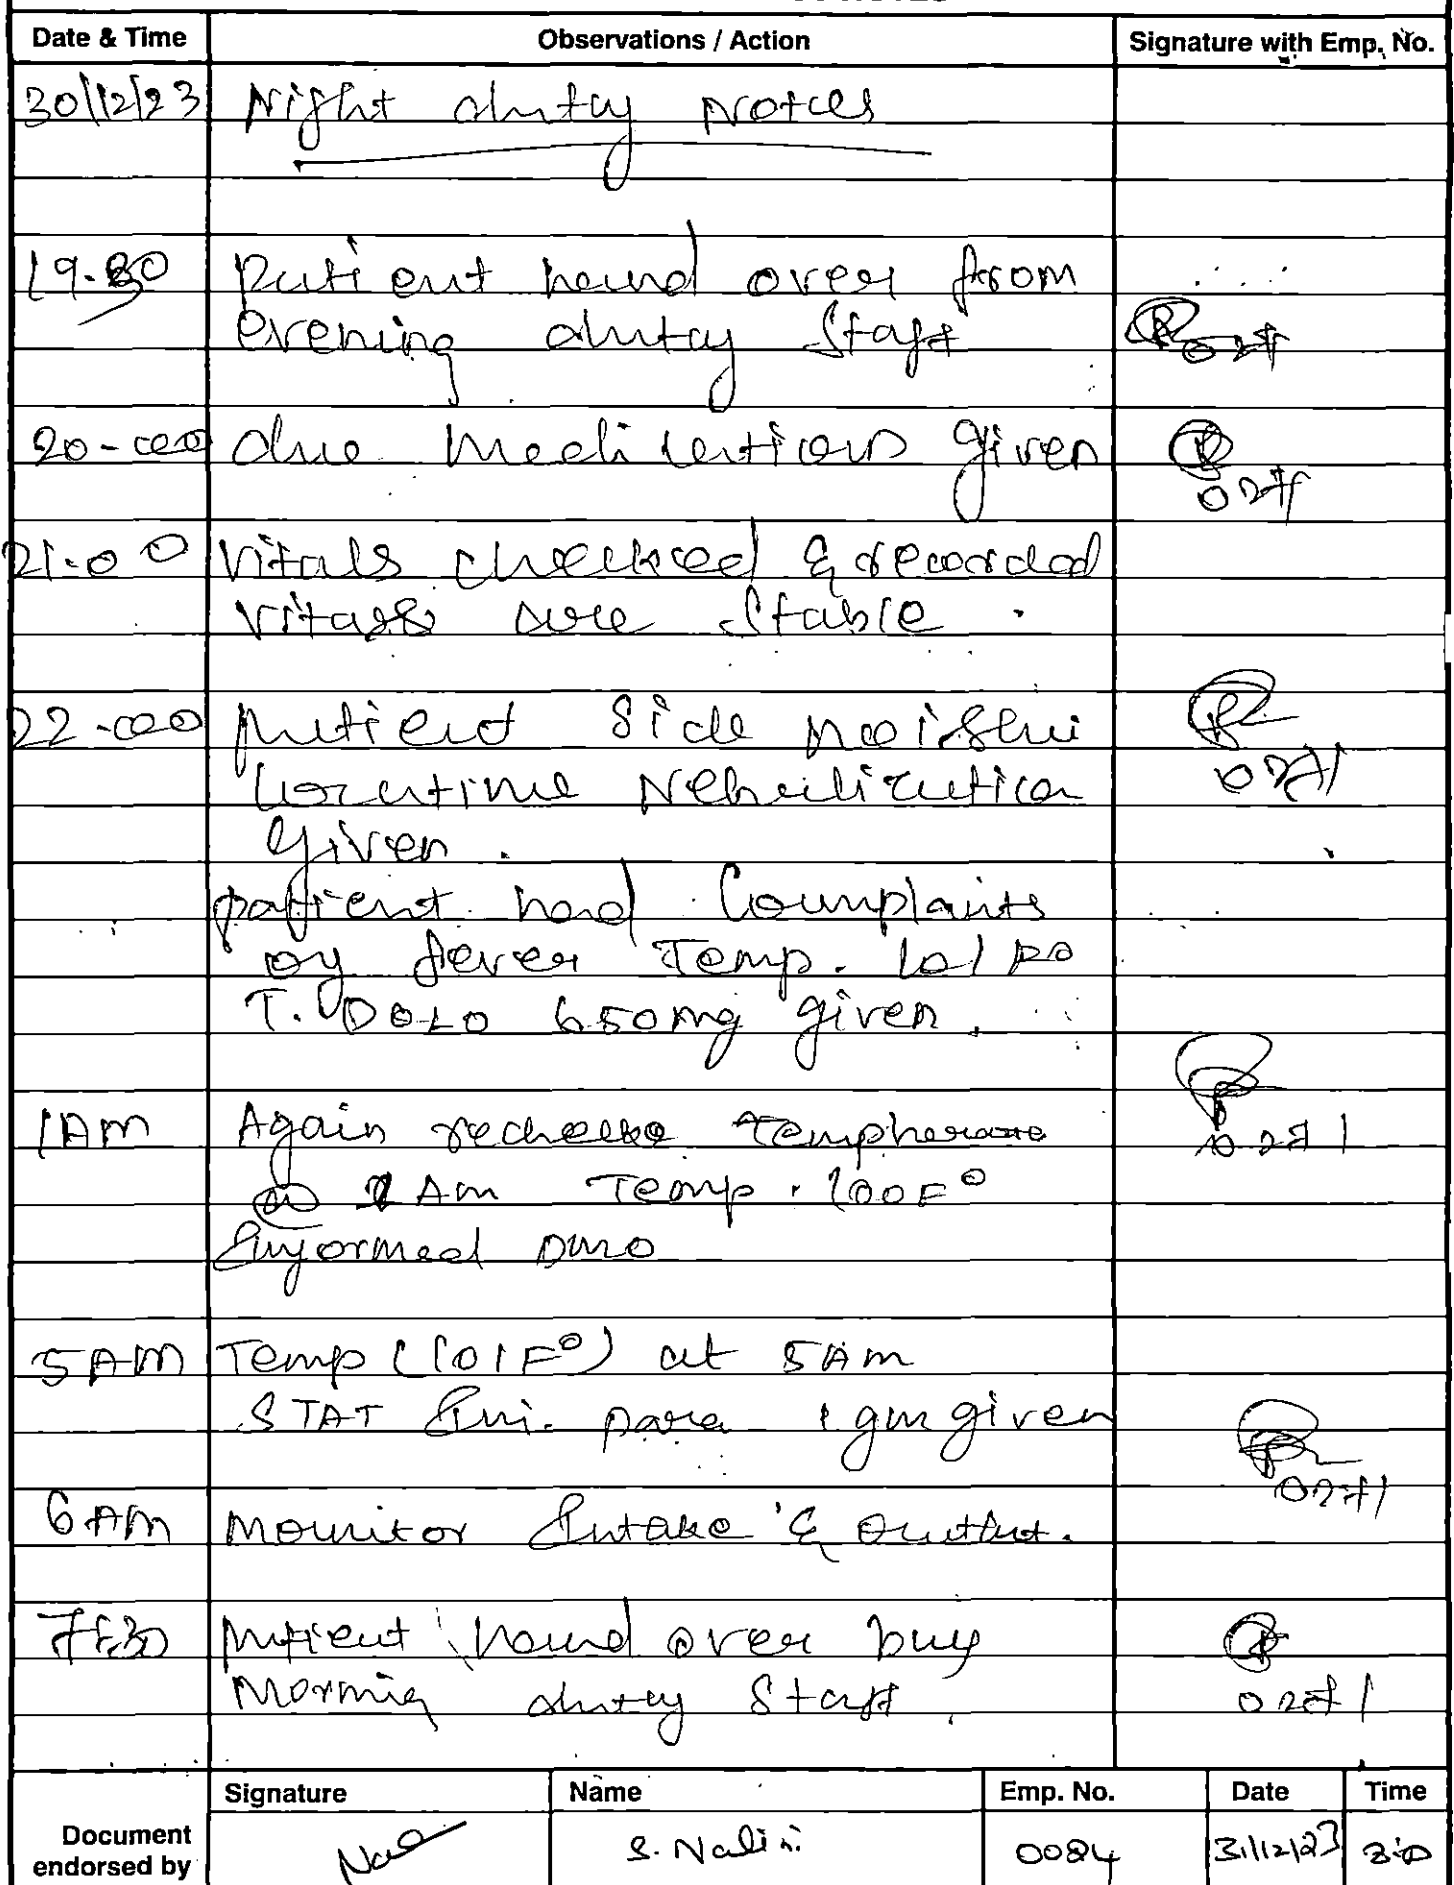 Date & Time Observations / Action Signature with Emp. No.
30/12/23 Night duty Notes
19.30 Patient hand over from
evening duty Staff
20-00 due Medications given
21.00 Vitals checked & recorded
Vitals are Stable.
0271
22-00 patient Side
Nebulization
given.
patient had Complaints
of fever Temp. 101
T. DOLO 650mg given.
0271
1AM Again recheck
AM Temp. 100F°
Informed DMO
5AM Temp (101F°) at 5AM
STAT Inj. para 1gm given
0271
6AM Mounitor Intake & output.
7:30 patient hand over buy
Morning duty Staff.
0271
Signature Name Emp. No. Date Time
Document
endorsed by S. Nalini 0084 31/12/23